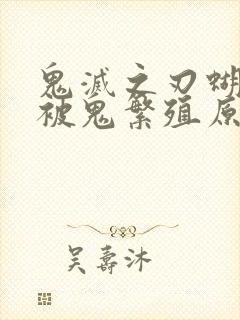 鬼滅之刃蝴
被鬼繁殖原
吴壽沐